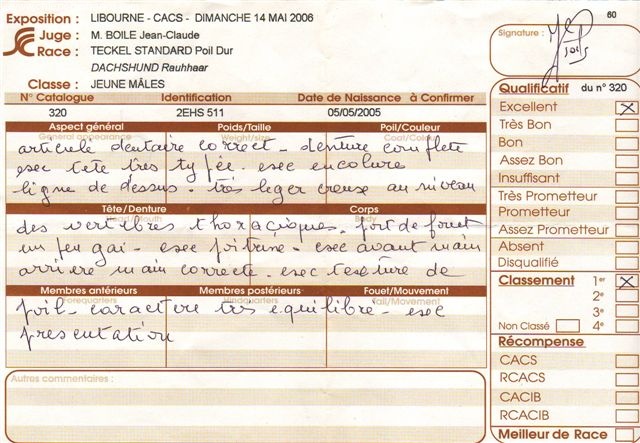 Exposition : LIBOURNE - CACS - DIMANCHE 14 MAI 2006
Juge : M. BOILE Jean-Claude
Race : TECKEL STANDARD Poil Dur
DACHSHUND Rauhhaar
Classe : JEUNE MÂLES
60
Signature :
N° Catalogue Identification Date de Naissance à Confirmer
320 2EHS 511 05/05/2005
Aspect général Poids/Taille Poil/Couleur
General appearance Weight/size Coat/Colour
articulé dentaire correct - denture complete
exc tete tres typée. exc encolure
ligne de dessus. très leger creuse au niveau
Tête/Denture Corps
Head/Mouth Body
des vertebres thoraciques. port de fouet
un peu gai - exc poitrine - exc avant main
arriere main correcte - exc texture de
Membres antérieurs Membres postérieurs Fouet/Mouvement
Forequarters Hindquarters Tail/Movement
poil - caractere très equilibre - exc
presentation
Autres commentaires :
Qualificatif du n° 320
Excellent X
Très Bon
Bon
Assez Bon
Insuffisant
Très Prometteur
Prometteur
Assez Prometteur
Absent
Disqualifié
Classement 1er X
2e
3e
Non Classé 4e
Récompense
CACS
RCACS
CACIB
RCACIB
Meilleur de Race